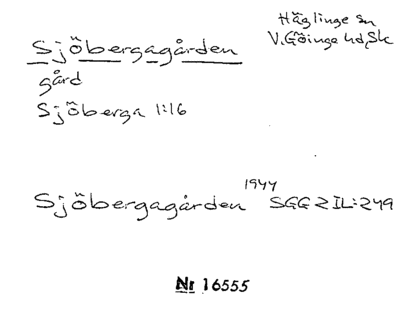 Sjöbergagården
Häglinge sn
V. Göinge hd, Sk
gård
Sjöberga 1:16
Sjöbergagården 1944 SGG 2 IL:249
Nr 16555